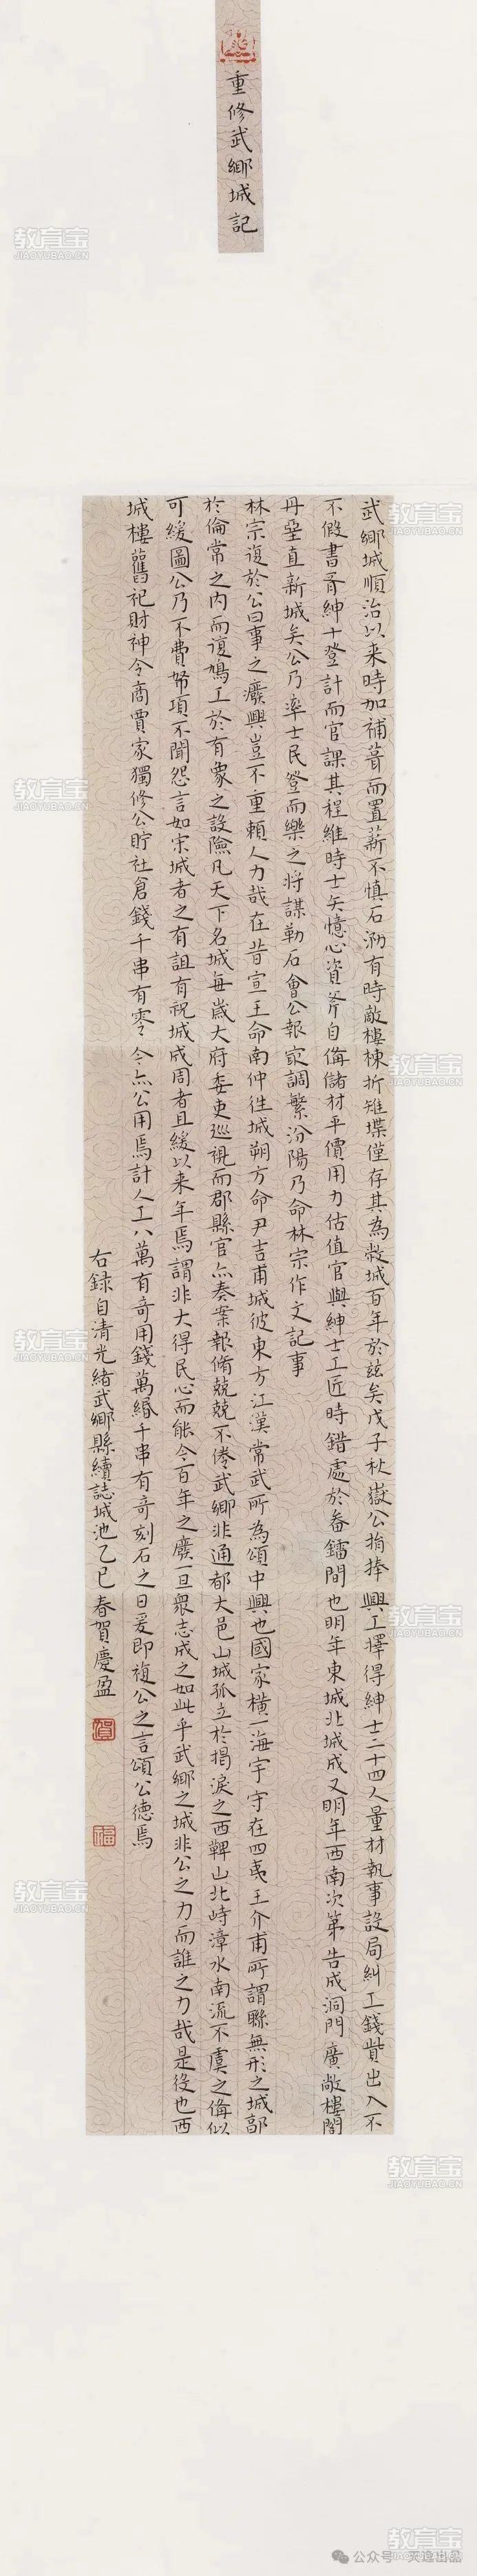 重修武鄉城記
武鄉城順治以来時加補葺而置薪不慎石泐有時敵樓棟折雉堞僅存其為殺城百年於茲矣戊子秋嶽公捐捧興工擇得紳士二十四人量材執事設局糾工錢貲出入不
不假書胥紳士登計而官課其程維時士矢憶心資斧自俻儲材平價用力估值官與紳士工匠時錯處於畚鍤間也明年東城北城成又明年西南次第告成洞門廣敞樓閣
丹堊直新城矣公乃率士民登而樂之將謀勒石會公報最調繁汾陽乃命林宗作文記事
林宗復於公曰事之廢興豈不重賴人力哉在昔宣王命南仲徃城朔方命尹吉甫城彼東方江漢常武所為頌中興也國家橫一海宇守在四夷王介甫所謂聯無形之城郭
於倫常之内而復鳩工於有象之設險凡天下名城每歲大府委吏巡視而郡縣官亦奏案報脩兢兢不倦武鄉非通都大邑山城孤立於揭淚之西鞞山北峙漳水南流不虞之俻似
可緩圖公乃不費帑項不聞怨言如宋城者之有詛有祝城成周者且緩以来年焉謂非大得民心而能令百年之廢一旦衆志成之如此乎武鄉之城非公之力而誰之力哉是役也西
城樓舊祀財神令商賈家獨修公貯社倉錢千串有零令亦公用焉計人工八萬有奇用錢萬緡千串有奇刻石之日爰即複公之言頌公德焉
右錄自清光緒武鄉縣續誌城池乙巳春賀慶盈
賀
福
教育宝
JIAOYUBAO.CN
教育宝
JIAOYUBAO.CN
教育宝
JIAOYUBAO.CN
教育宝
JIAOYUBAO.CN
教育宝
JIAOYUBAO.CN
教育宝
JIAOYUBAO.CN
教育宝
JIAOYUBAO.CN
教育宝
JIAOYUBAO.CN
教育宝
JIAOYUBAO.CN
教育宝
JIAOYUBAO.CN
公众号
出品